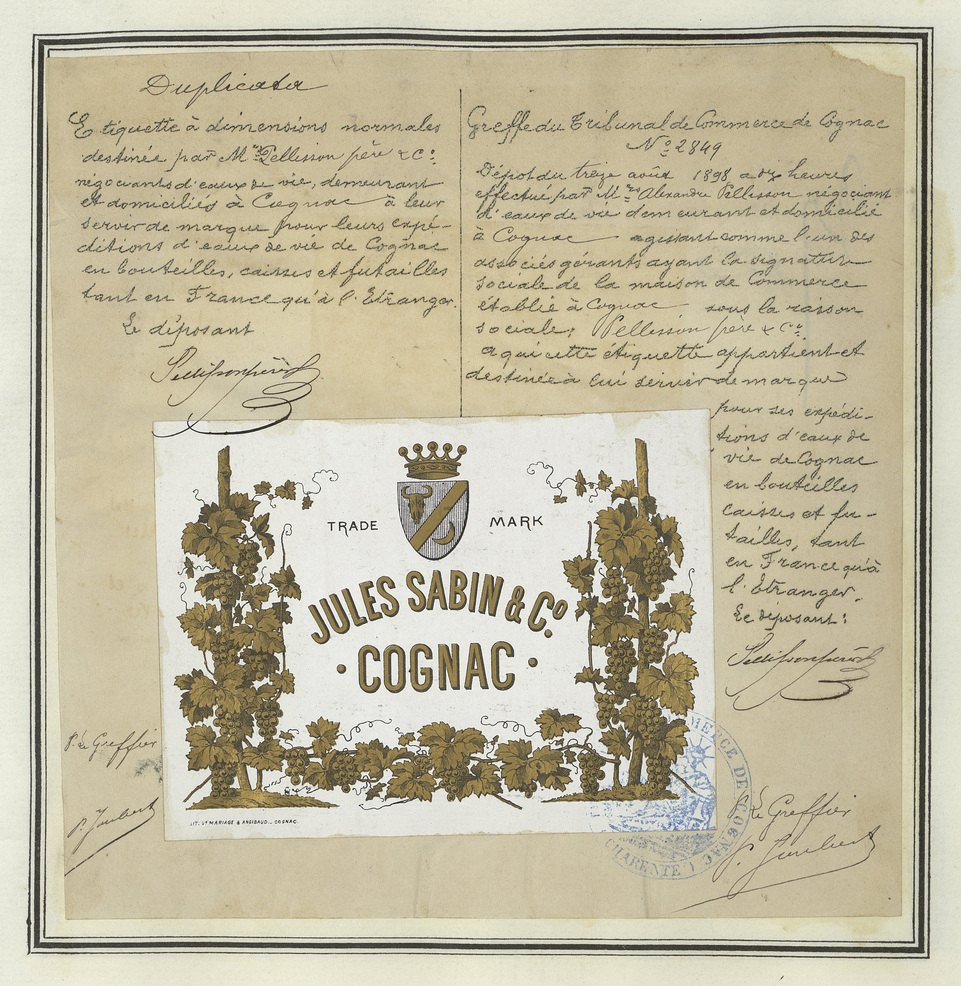 Duplicata
Etiquette à dimensions normales
destinée par Mrs Pellisson père & Cie
négociants d'eaux de vie, demeurant
et domiciliés à Cognac à leur
servir de marque pour leurs expé-
ditions d'eaux de vie de Cognac
en bouteilles, caisses et futailles
tant en France qu'à l'Etranger.
Le déposant
Pellisson père & Co
Greffe du Tribunal de Commerce de Cognac
No 2849
Dépôt du treize août 1898 a dix heures
effectué par Mr Alexandre Pellisson négociant
d'eaux de vie demeurant et domicilié
à Cognac agissant comme l'un des
associés gérants ayant la signature
sociale de la maison de Commerce
établie à Cognac sous la raison
sociale; Pellisson père & Cie
a qui cette étiquette appartient et
destinée à lui servir de marque
pour ses expédi-
tions d'eaux de
vie de Cognac
en bouteilles
caisses et fu-
tailles, tant
en France qu'à
l'Etranger.
Le déposant:
Pellisson père & Co
TRADE MARK
JULES SABIN & Co.
· COGNAC ·
LIT. Vve MARIAGE & ANGIBAUD._ COGNAC.
P. le Greffier
P. Joubert
COMMERCE DE COGNAC
CHARENTE
Le Greffier
P. Joubert